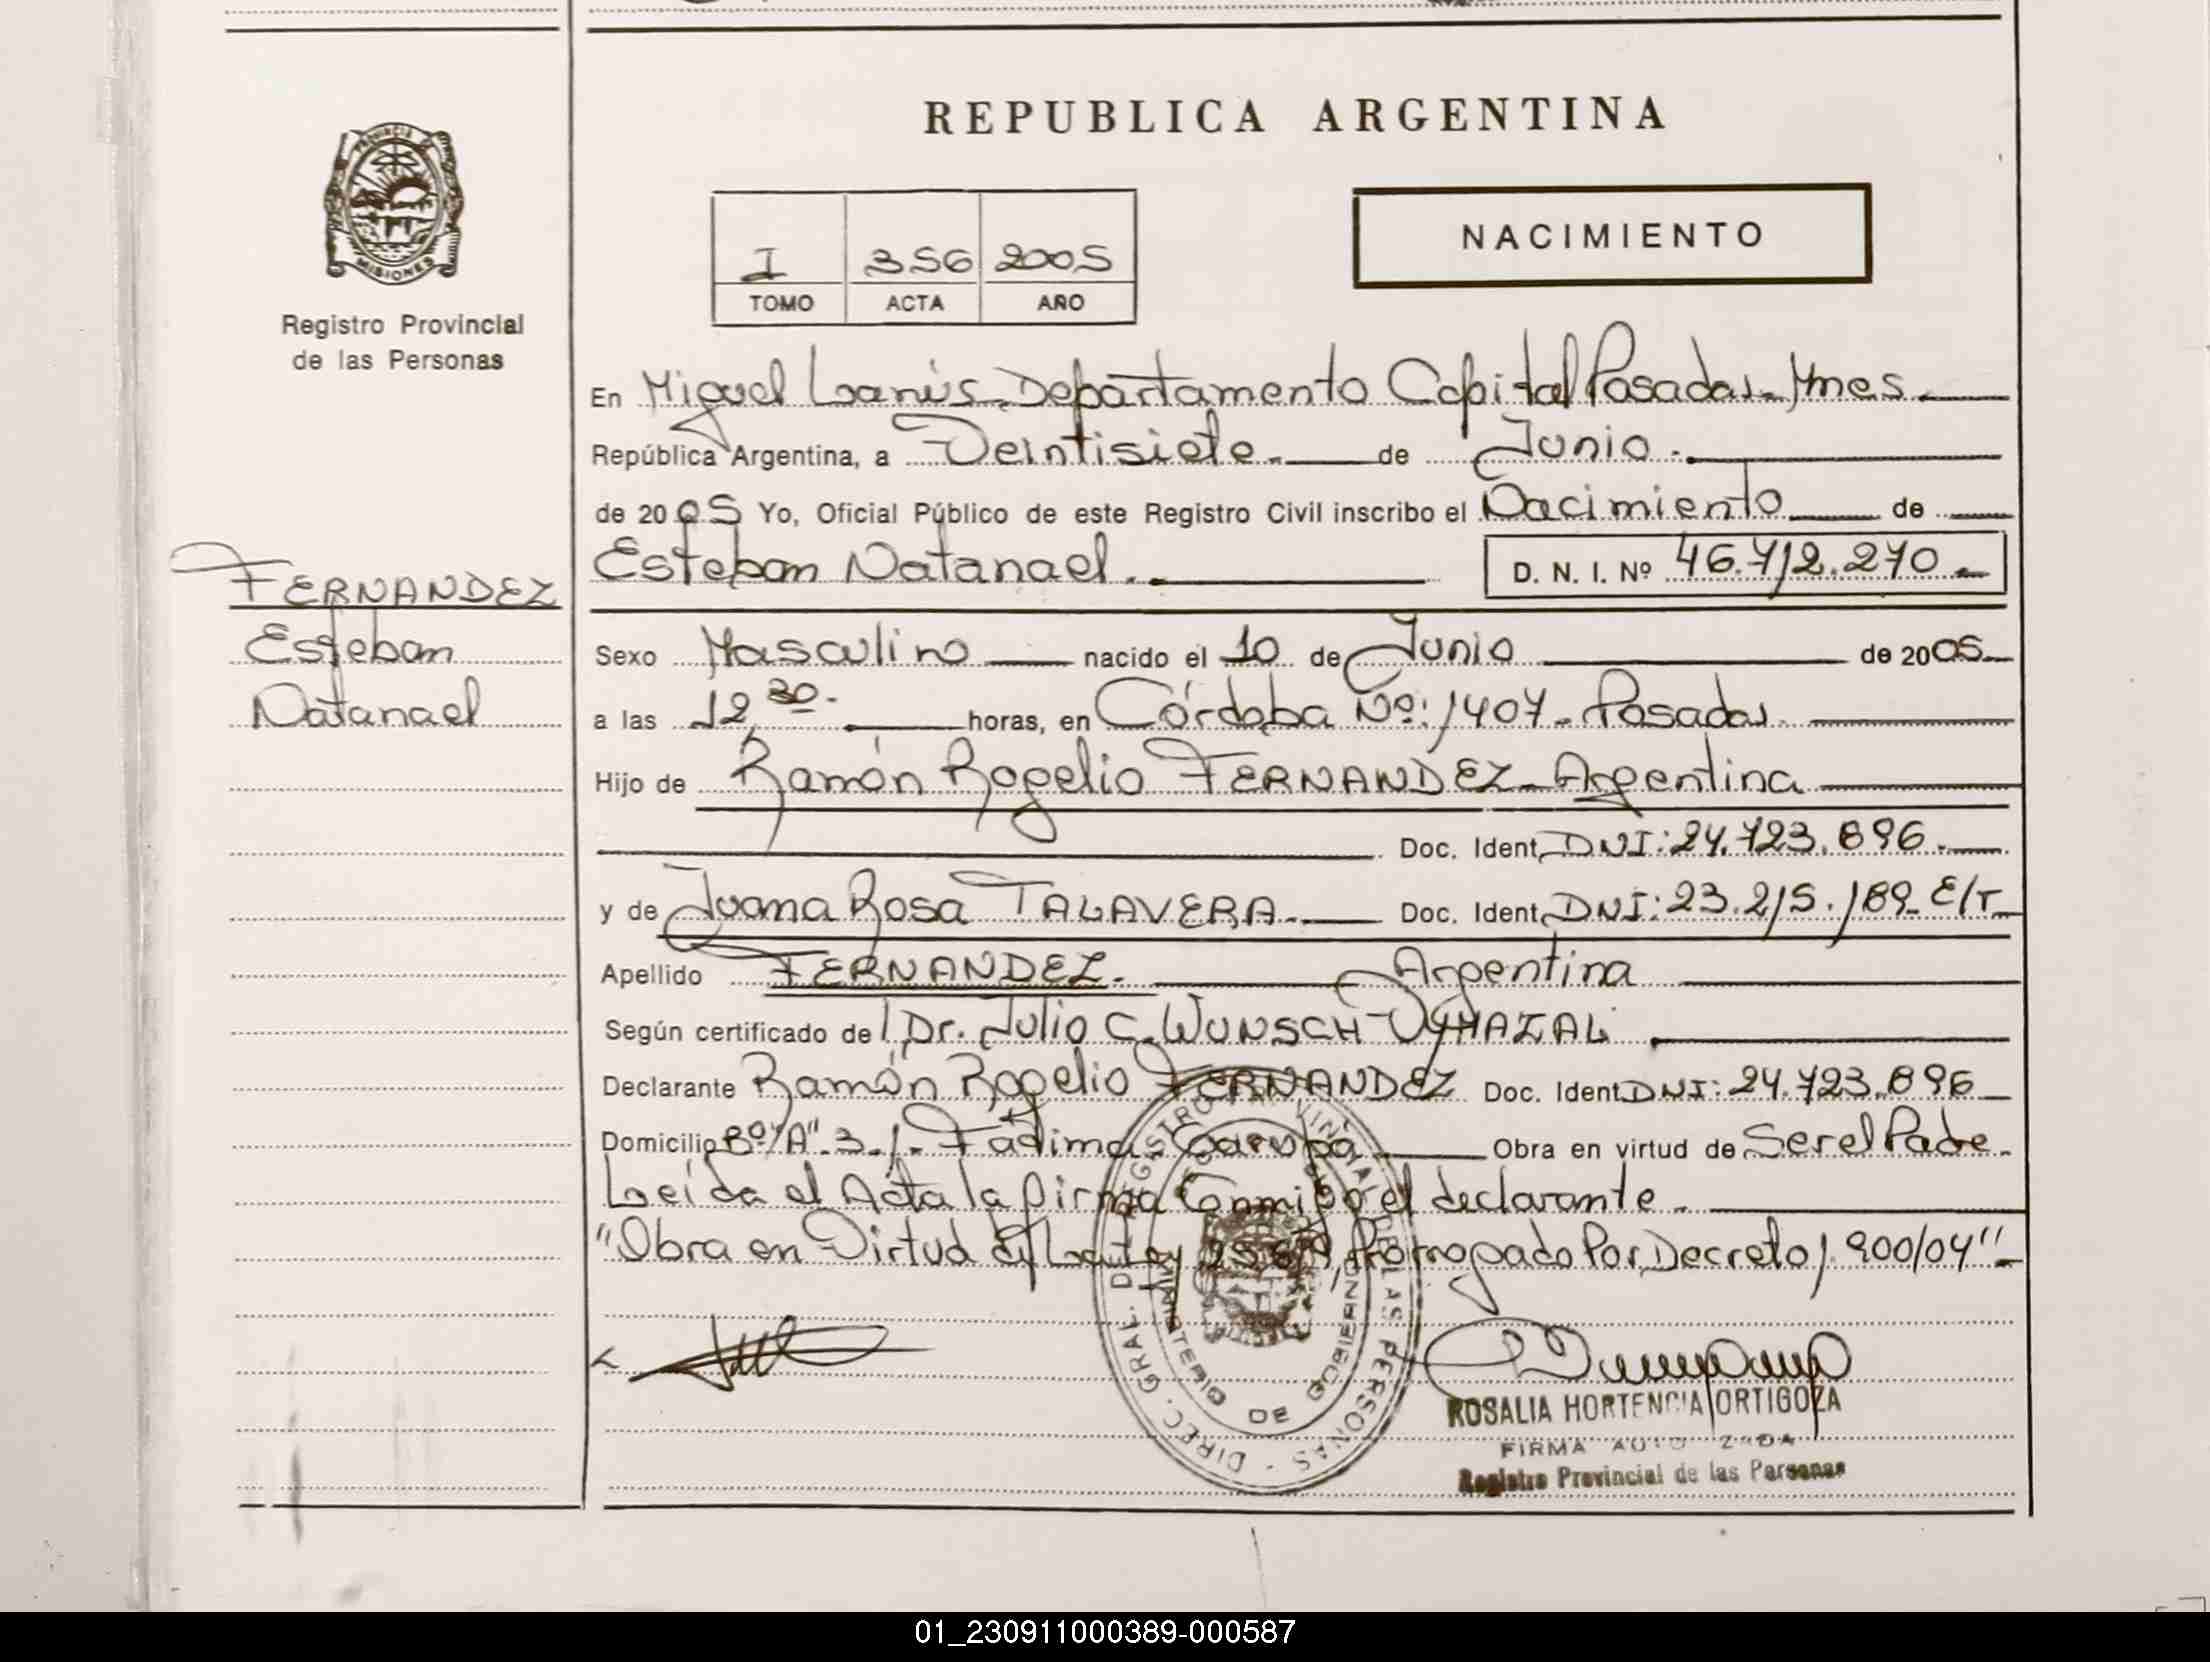 REPUBLICA ARGENTINA
PROVINCIA DE
MISIONES
Registro Provincial
de las Personas
I 356 2005
TOMO ACTA AÑO
NACIMIENTO
En Miguel Lanús - Departamento Capital Posadas - Mnes
República Argentina, a Veintisiete - de Junio -
de 2005 Yo, Oficial Público de este Registro Civil inscribo el Nacimiento de
Esteban Natanael - D. N. I. Nº 46.712.270 -
FERNANDEZ
Esteban
Natanael
Sexo Masculino nacido el 10 de Junio de 2005
a las 12,30 - horas, en Córdoba Nº: 1407 - Posadas
Hijo de Ramón Rogelio FERNANDEZ - Argentina
Doc. Ident. DNI: 24.723.896 -
y de Juana Rosa TALAVERA - Doc. Ident. DNI: 23.215.189 - E/T
Apellido FERNANDEZ - Argentina
Según certificado de l Dr. Julio C. WUNSCH
Declarante Ramón Rogelio FERNANDEZ Doc. Ident. DNI: 24.723.896
Domicilio Bº "A" 3.1 - Fátima - Garupá Obra en virtud de Ser el Padre -
Leída el Acta la firma Conmigo el declarante -
"Obra en Virtud de La Ley Prorrogado Por Decreto 1.900/04" -
DIREC. GRAL. DEL REGISTRO PROVINCIAL DE LAS PERSONAS
MINISTERIO DE GOBIERNO
ROSALIA HORTENCIA ORTIGOZA
FIRMA AUTORIZADA
Registro Provincial de las Personas
01_230911000389-000587